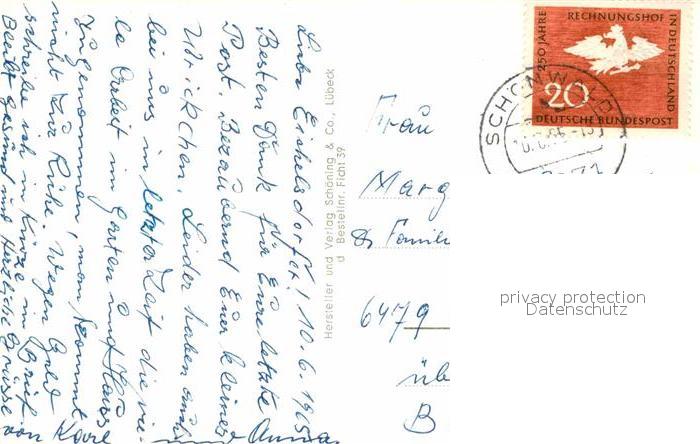 Liebe Eichelsdorfer! 10.6.1965
Besten Dank für Eure letzte
Post. Bezaubernd Euer kleiner
Ulrickchen. Leider haben auch
bei uns in letzter Zeit die vie-
le Arbeit im Garten und Haus
zugenommen, man kommt
nicht zur Ruhe. Wegen Geld
schreibe ich in Kürze im Brief
Bleibt gesund und herzliche Grüsse
von Karl Anna
Hersteller und Verlag Schöning & Co., Lübeck
d Bestellnr. Ficht 39
250 JAHRE
RECHNUNGSHOF
IN DEUTSCHLAND
20
DEUTSCHE BUNDESPOST
Frau
Marg
& Famili
6479
üb
B
privacy protection
Datenschutz